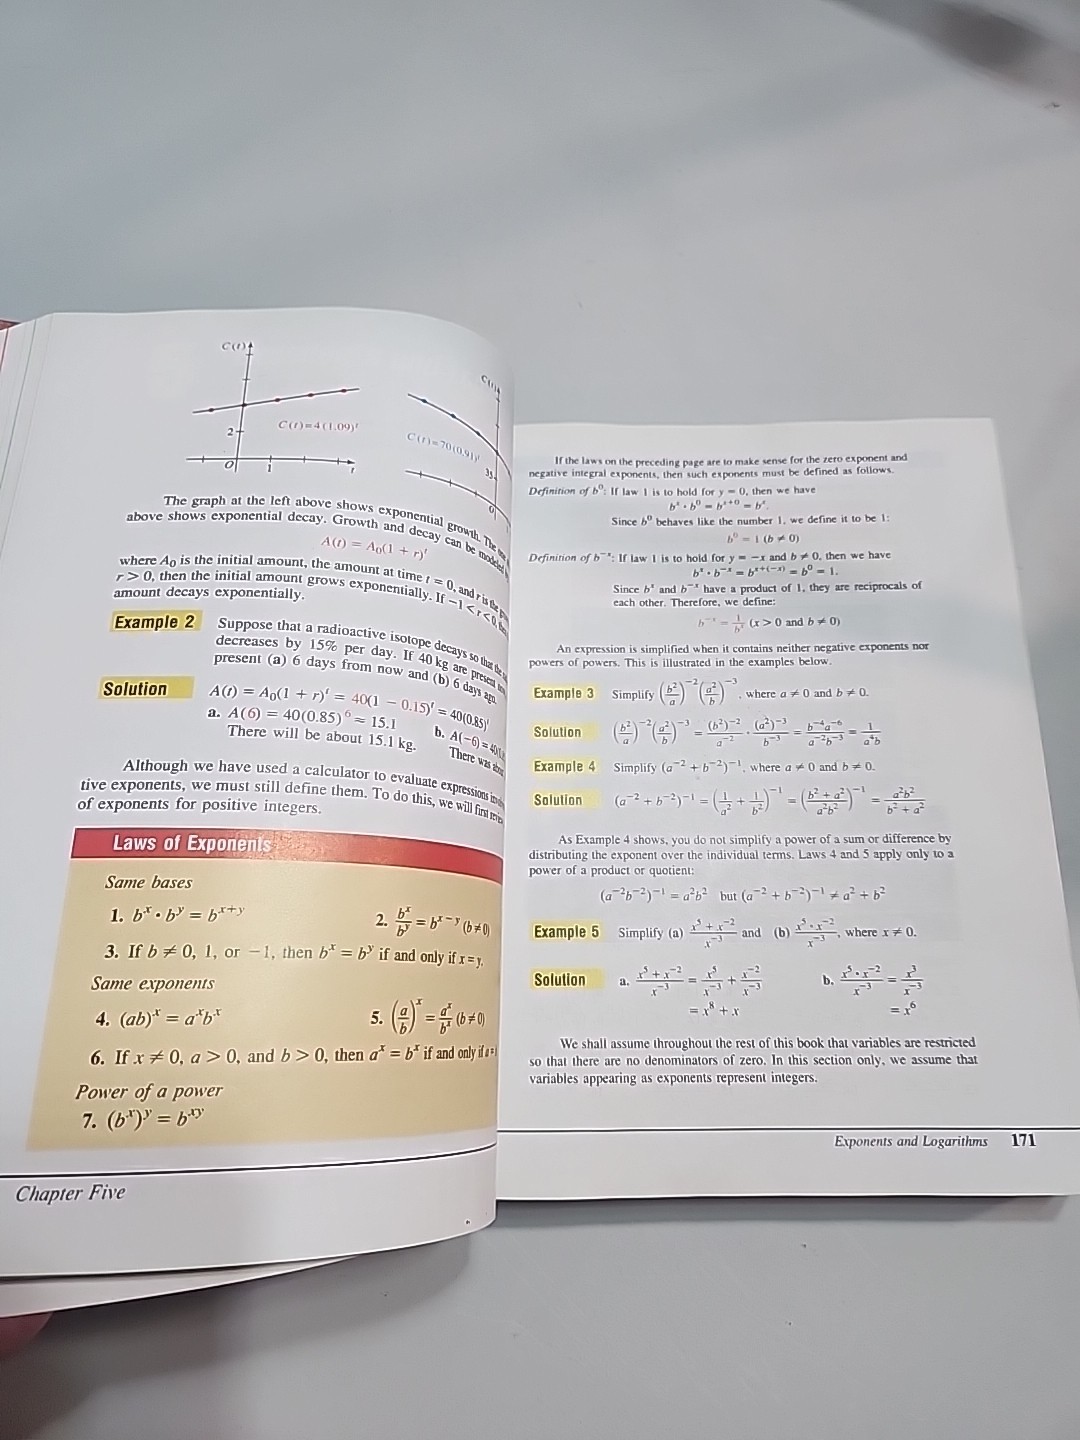 C(t)
C(t)=4(1.09)^t
2
O
1
t
C(t)
C(t)=70(0.91)^t
35
O
The graph at the left above shows exponential growth. The
above shows exponential decay. Growth and decay can be modeled
A(t) = A₀(1 + r)^t
where A₀ is the initial amount, the amount at time t = 0, and r is the
r > 0, then the initial amount grows exponentially. If −1 < r < 0,
amount decays exponentially.
Example 2 Suppose that a radioactive isotope decays so that the
decreases by 15% per day. If 40 kg are present
present (a) 6 days from now and (b) 6 days ago.
Solution A(t) = A₀(1 + r)^t = 40(1 − 0.15)^t = 40(0.85)^t
a. A(6) = 40(0.85)^6 = 15.1 b. A(−6) =
There will be about 15.1 kg. There was
Although we have used a calculator to evaluate expressions
tive exponents, we must still define them. To do this, we will first
of exponents for positive integers.
Laws of Exponents
Same bases
1. b^x · b^y = b^(x+y) 2. b^x/b^y = b^(x−y) (b≠0)
3. If b ≠ 0, 1, or −1, then b^x = b^y if and only if x = y.
Same exponents
4. (ab)^x = a^x b^x 5. (a/b)^x = a^x/b^x (b≠0)
6. If x ≠ 0, a > 0, and b > 0, then a^x = b^x if and only if
Power of a power
7. (b^x)^y = b^(xy)
Chapter Five
If the laws on the preceding page are to make sense for the zero exponent and
negative integral exponents, then such exponents must be defined as follows.
Definition of b^0: If law 1 is to hold for y = 0, then we have
b^x · b^0 = b^(x+0) = b^x.
Since b^0 behaves like the number 1, we define it to be 1:
b^0 = 1 (b ≠ 0)
Definition of b^(−x): If law 1 is to hold for y = −x and b ≠ 0, then we have
b^x · b^(−x) = b^(x+(−x)) = b^0 = 1.
Since b^x and b^(−x) have a product of 1, they are reciprocals of
each other. Therefore, we define:
b^(−x) = 1/b^x (x > 0 and b ≠ 0)
An expression is simplified when it contains neither negative exponents nor
powers of powers. This is illustrated in the examples below.
Example 3 Simplify (b²/a)^(−2) (a²/b)^(−3), where a ≠ 0 and b ≠ 0.
Solution (b²/a)^(−2) (a²/b)^(−3) = (b²)^(−2)/a^(−2) · (a²)^(−3)/b^(−3) = b^(−4)a^(−6)/a^(−2)b^(−3) = 1/a⁴b
Example 4 Simplify (a^(−2) + b^(−2))^(−1), where a ≠ 0 and b ≠ 0.
Solution (a^(−2) + b^(−2))^(−1) = (1/a² + 1/b²)^(−1) = ((b² + a²)/a²b²)^(−1) = a²b²/(b² + a²)
As Example 4 shows, you do not simplify a power of a sum or difference by
distributing the exponent over the individual terms. Laws 4 and 5 apply only to a
power of a product or quotient:
(a^(−2)b^(−2))^(−1) = a²b² but (a^(−2) + b^(−2))^(−1) ≠ a² + b²
Example 5 Simplify (a) (x⁵ + x^(−2))/x^(−3) and (b) (x⁵ · x^(−2))/x^(−3), where x ≠ 0.
Solution a. (x⁵ + x^(−2))/x^(−3) = x⁵/x^(−3) + x^(−2)/x^(−3) b. (x⁵ · x^(−2))/x^(−3) = x³/x^(−3)
= x⁸ + x = x⁶
We shall assume throughout the rest of this book that variables are restricted
so that there are no denominators of zero. In this section only, we assume that
variables appearing as exponents represent integers.
Exponents and Logarithms 171